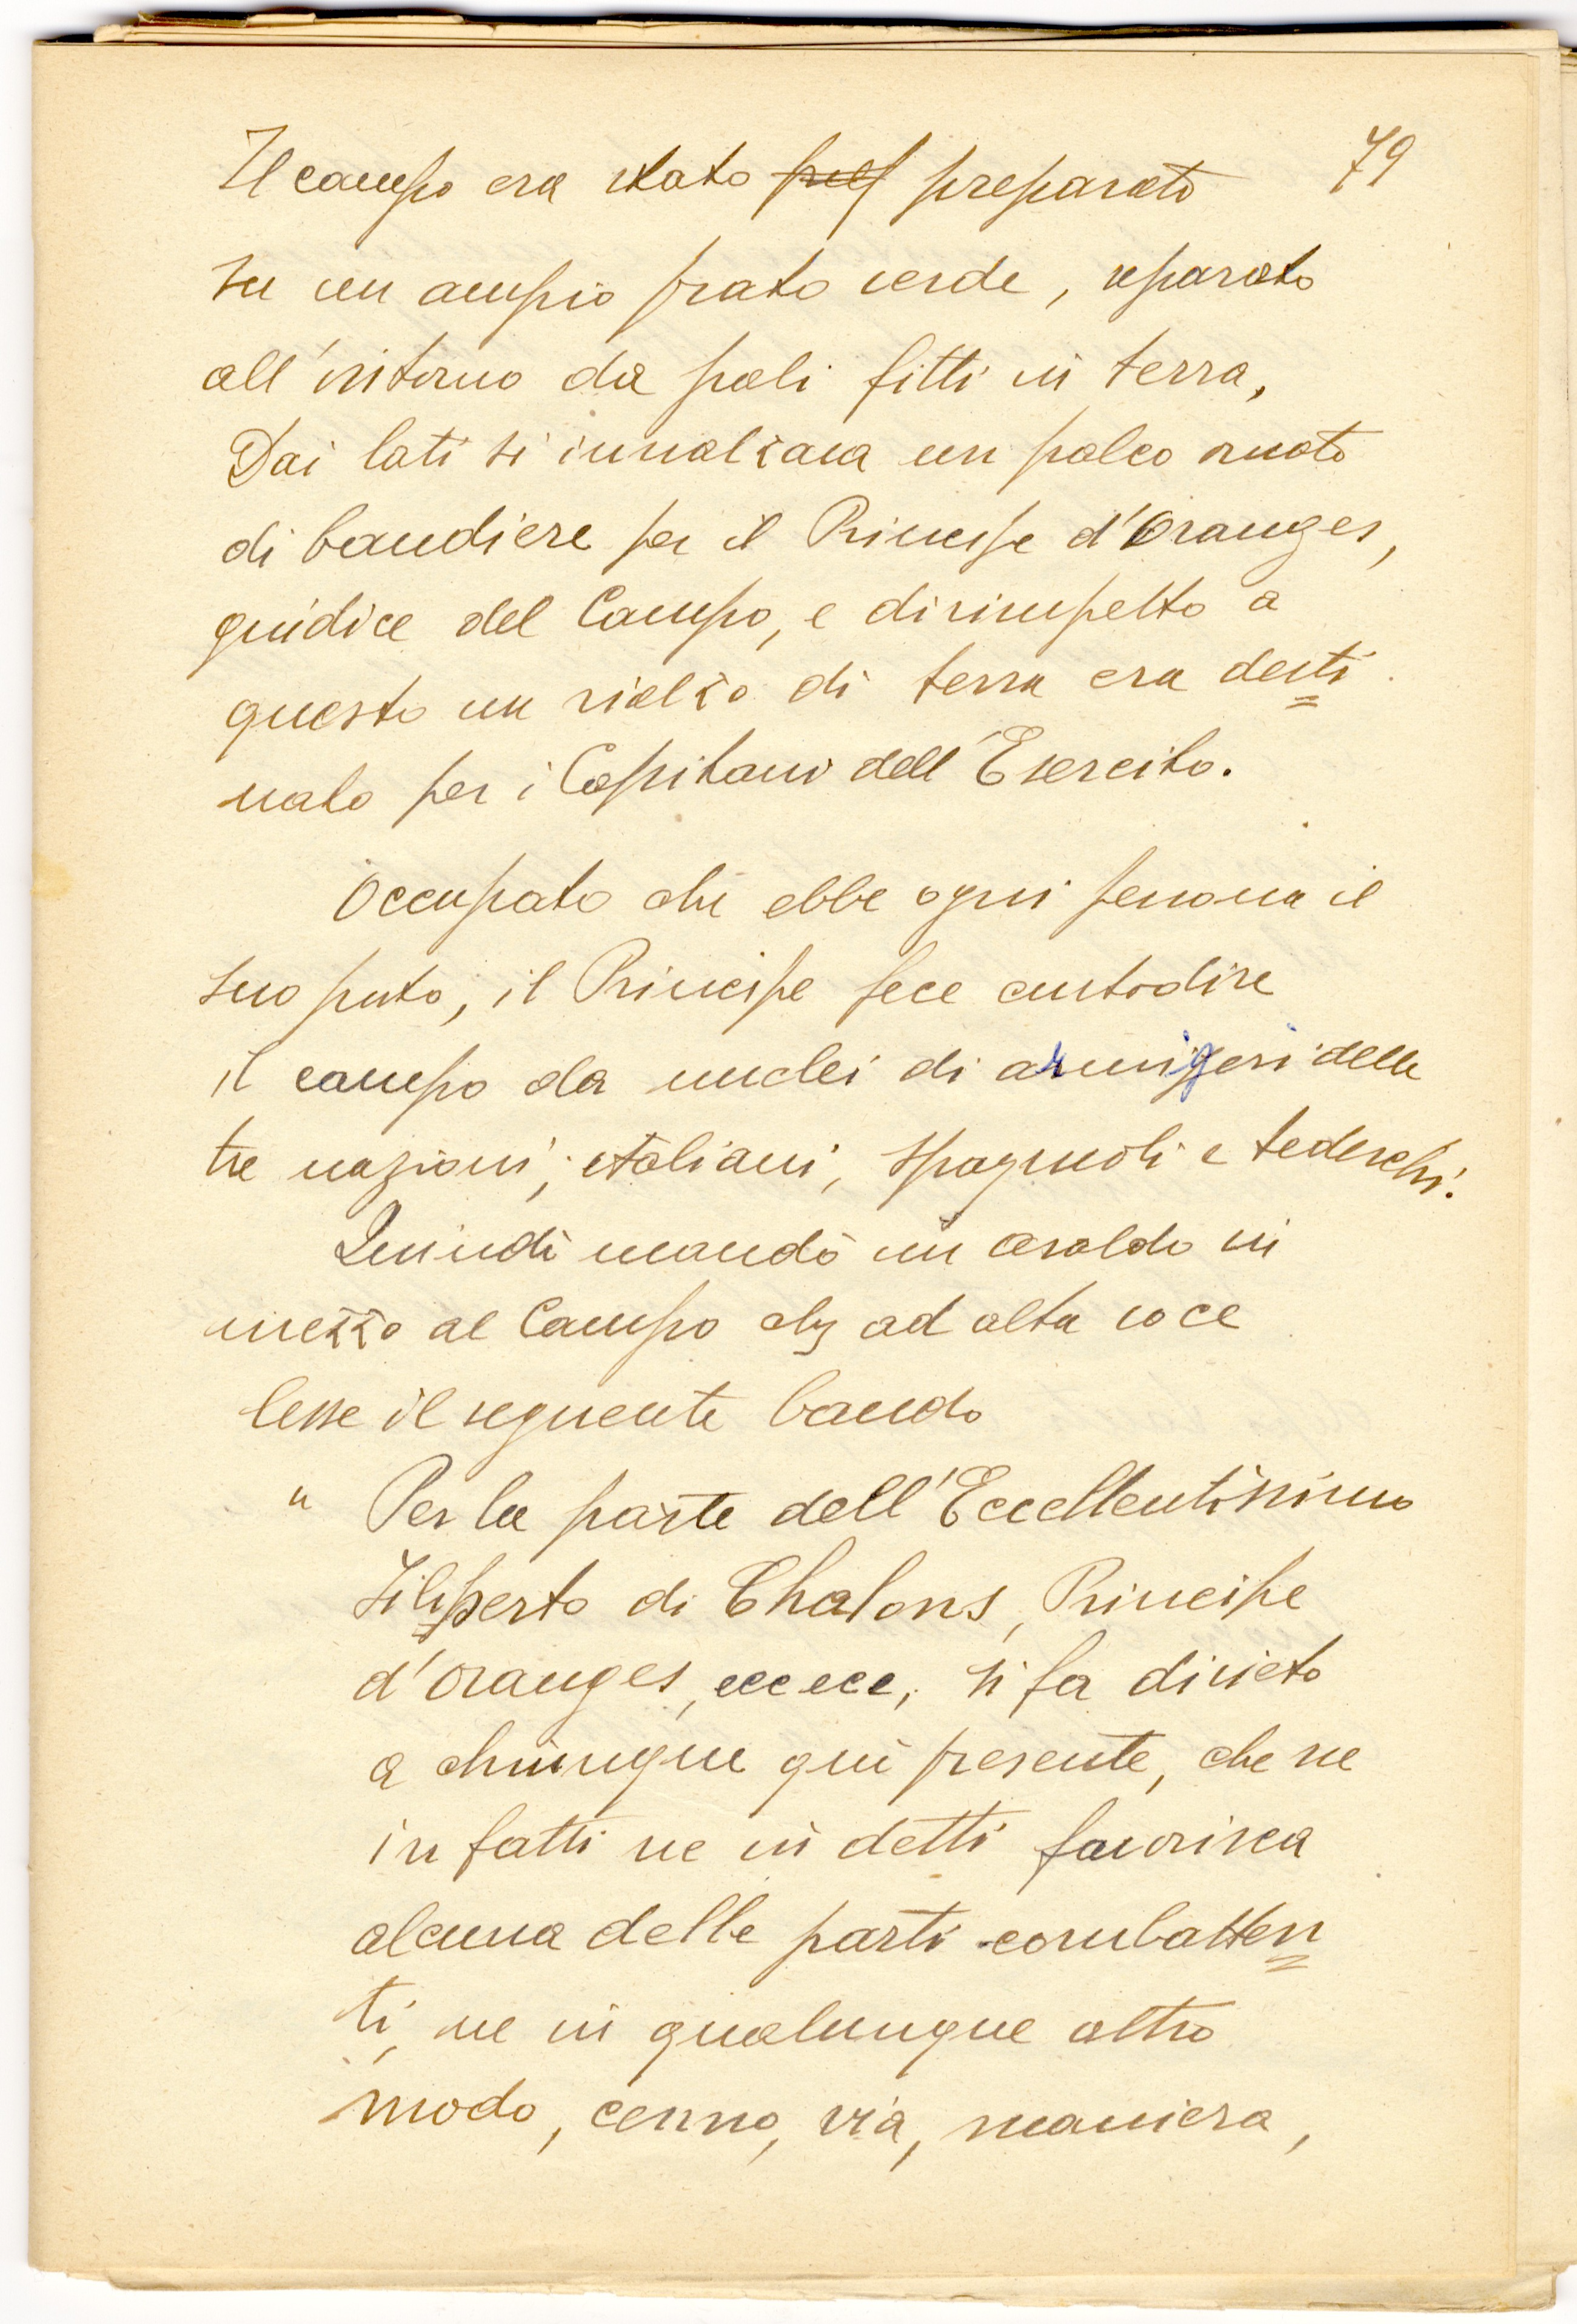 79
Il campo era stato pref preparato
su un ampio prato verde, separato
all'intorno da pali fitti in terra,
Dai lati si innalzava un palco ornato
di bandiere per il Principe d'Oranges,
giudice del Campo, e dirimpetto a
questo un rialzo di terra era desti
nato per i Capitani dell'Esercito.
Occupato chi ebbe ogni persona il
suo posto, il Principe fece custodire
il campo da nuclei di armigeri delle
tre nazioni; italiani, spagnoli e tedeschi.
Quindi mandò un araldo in
mezzo al Campo che ad alta voce
lesse il seguente bando
" Per la parte dell'Eccellentissimo
Filiperto di Chalons, Principe
d'Oranges, ecc ecc, si fa divieto
a chiunque qui presente, che ne
in fatti ne in detti favorisca
alcuna delle parti combatten
ti, ne in qualunque altro
modo, cenno, via, maniera,